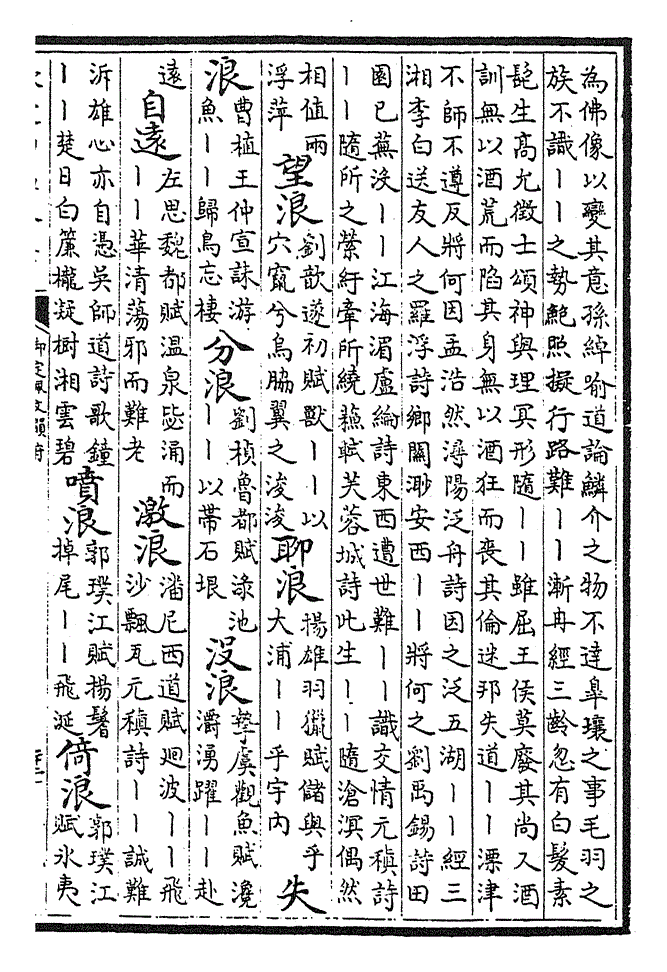 為佛像以變其意孫綽喻道論鱗介之物不達臯壤之事毛羽之
族不識丨丨之勢鮑照擬行路難丨丨漸冉經三齡忽有白髮素
髭生高允徵士頌神與理冥形隨丨丨雖屈王侯莫廢其尚又酒
訓無以酒荒而陷其身無以酒狂而喪其倫迷邦失道丨丨漂津
不師不遵反將何因孟浩然潯陽泛舟詩因之泛五湖丨丨經三
湘李白送友人之羅浮詩鄉關渺安西丨丨將何之劉禹錫詩田
園已蕪沒丨丨江海湄盧綸詩東西遭世難丨丨識交情元稹詩
丨丨隨所之縈紆牽所繞蘇軾芙蓉城詩此生丨丨隨滄溟偶然
相值兩
浮萍
望浪
劉歆遂初賦獸丨丨以
穴竄兮鳥脇翼之浚浚
聊浪
揚雄羽獵賦儲與乎
大浦丨丨乎宇內
失
浪
曹植王仲宣誄游
魚丨丨歸鳥忘棲
分浪
劉楨魯都賦淥池
丨丨以帶石垠
沒浪
摯虞觀魚賦瀺
灂湧躍丨丨赴
遠
自遠
左思魏都賦溫泉毖涌而
丨丨華清蕩邪而難老
激浪
潘尼西道賦迴波丨丨飛
沙飄瓦元稹詩丨丨誠難
泝雄心亦自憑吳師道詩歌鐘
丨丨楚日白簾櫳凝樹湘雲碧
噴浪
郭璞江賦揚鬐
掉尾丨丨飛涎
倚浪
郭璞江
賦氷夷
御定佩文韻府